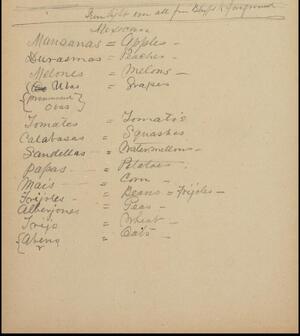 Sunlight over all from Bluffs & foreground
Mexican
Manzanas = Apples -
Duraemas = Peaches -
Melones = Melons -
Uvas = Grapes
(pronounced
Ovas
Tomates = Tomato's
Calabasas = Squashes
Sandellas = Watermellons -
Papas = Potatoes -
Mais = Corn -
Frijoles - = Beans = Frijoles -
Alberjones = Peas -
Trigo = Wheat -
Abena = Oats -